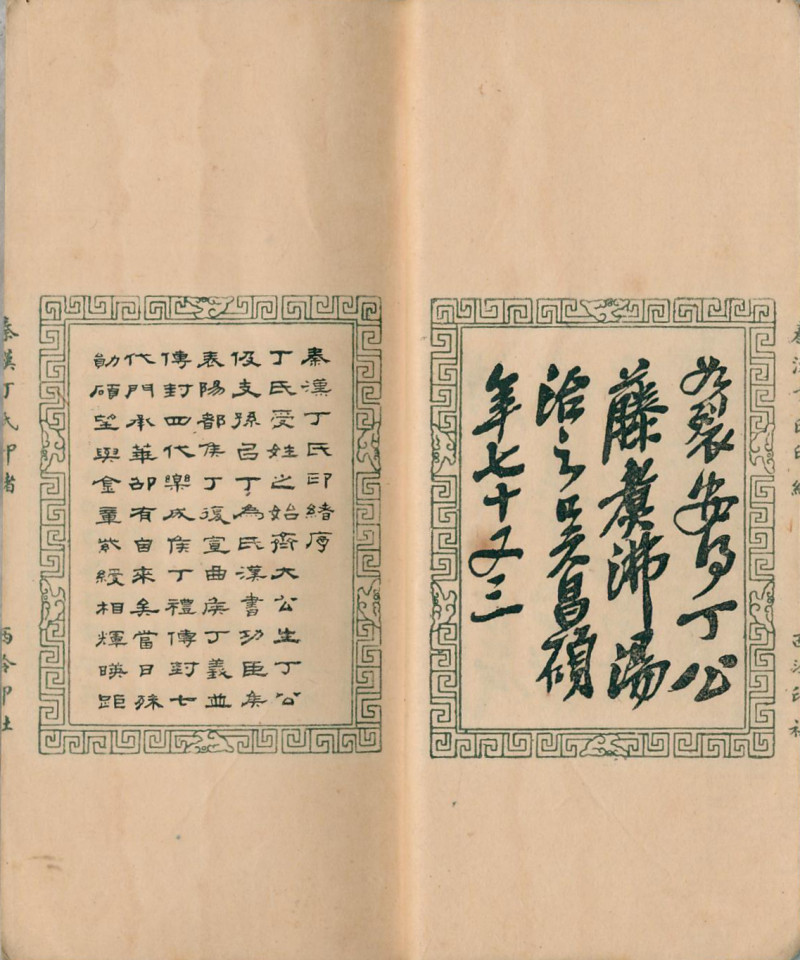 秦漢丁氏印緒
西泠印社
如裂安得丁公
藤煮沸湯
治之吳昌碩
年七十又三
秦漢丁氏印緒序
丁氏受姓之始齊大公生丁公
伋支孫㠯丁為氏漢書功臣矦
表陽都矦丁復宣曲矦丁義並
傳封四代樂成矦丁禮傳封七
代門承華有自來矣當日殊
勛碩望與金章紫綬相輝暎距
秦漢丁氏印緒
西泠印社